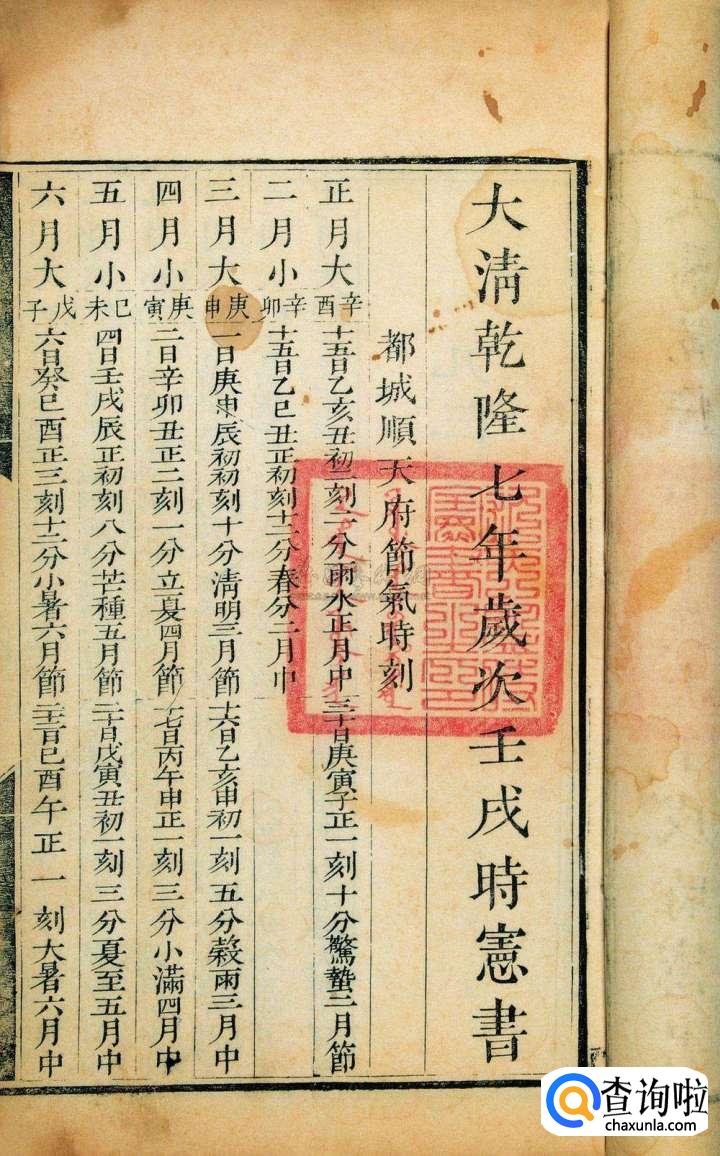 大清乾隆七年歲次壬戌時憲書
都城順天府節氣時刻
正月大辛酉十五日乙亥丑初二刻二分雨水正月中三十日庚寅子正一刻十分驚蟄二月節
二月小辛卯十五日乙巳丑正初刻十二分春分二月中
三月大庚申一日庚申辰初初刻十分清明三月節十六日乙亥申初一刻五分穀雨三月中
四月小庚寅二日辛卯丑正二刻一分立夏四月節十七日丙午申正一刻三分小滿四月中
五月小己未四日壬戌辰正初刻八分芒種五月節二十日戊寅丑初一刻三分夏至五月中
六月大戊子六日癸巳酉正三刻十二分小暑六月節二十二日己酉午正一刻大暑六月中
查询啦
chaxunla.com